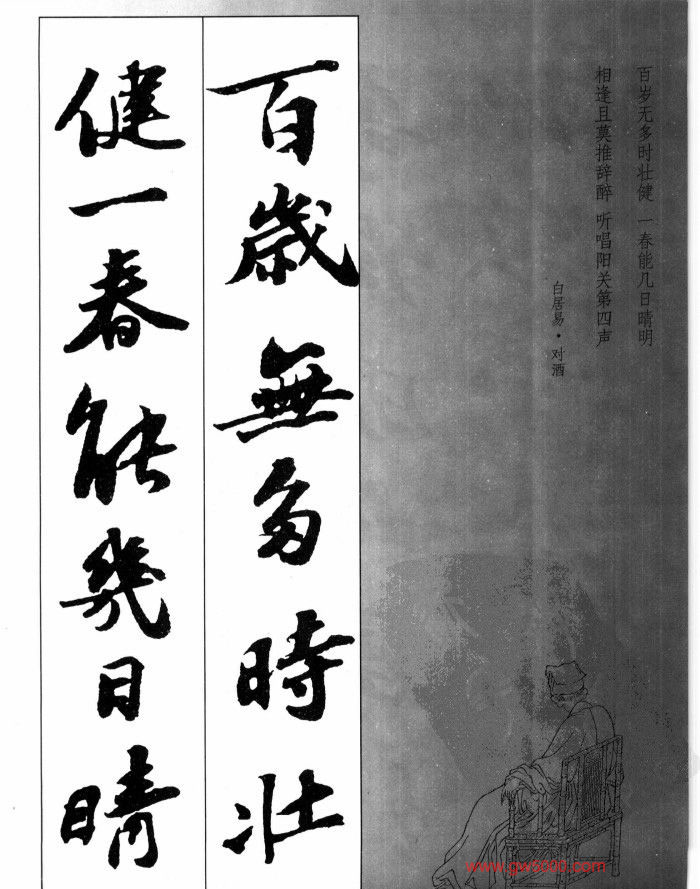 百岁无多时壮健 一春能几日晴明
相逢且莫推辞醉 听唱阳关第四声
白居易·对酒
百歲無多時壯
健一春能幾日晴
www.gw5000.com